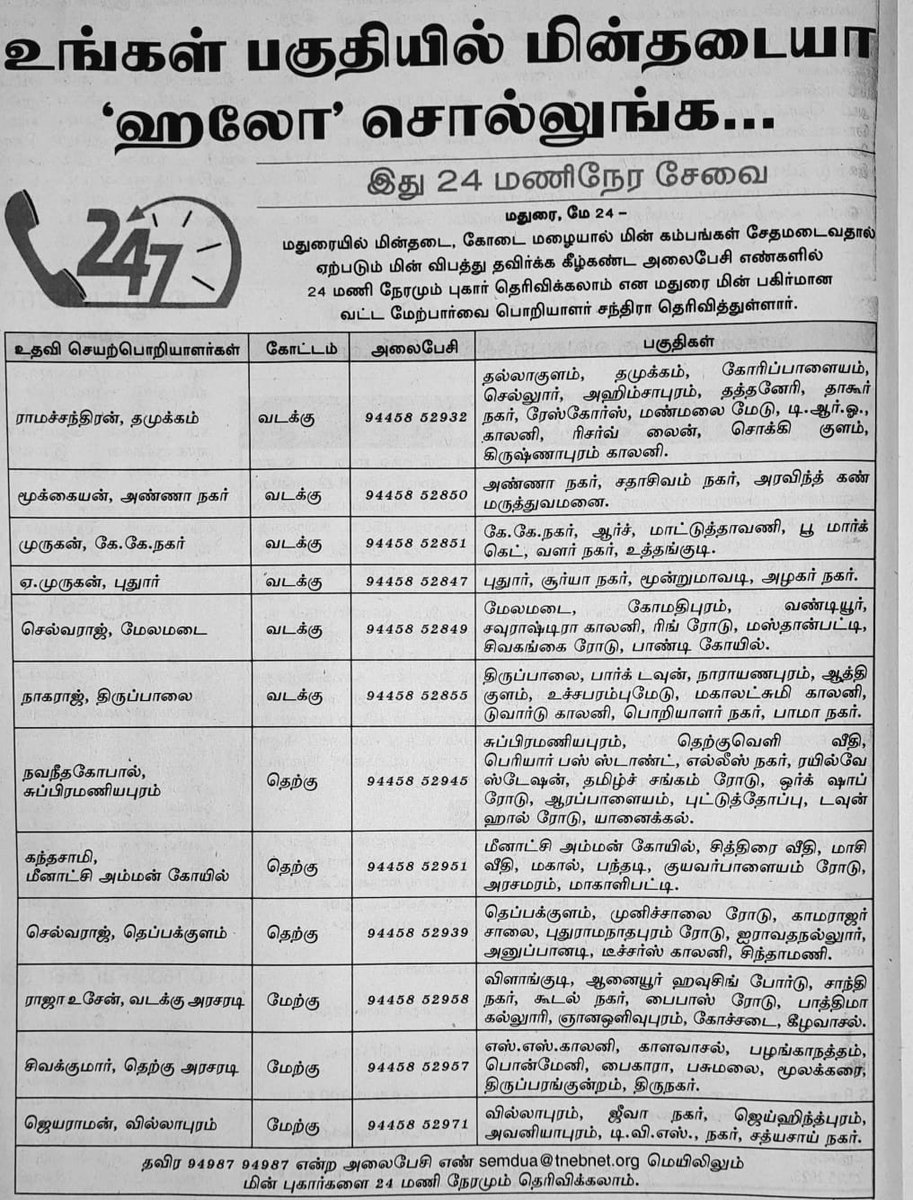 உங்கள் பகுதியில் மின்தடையா
‘ஹலோ’ சொல்லுங்க...
இது 24 மணிநேர சேவை
24
7
மதுரை, மே 24 –
மதுரையில் மின்தடை, கோடை மழையால் மின் கம்பங்கள் சேதமடைவதால்
ஏற்படும் மின் விபத்து தவிர்க்க கீழ்கண்ட அலைபேசி எண்களில்
24 மணி நேரமும் புகார் தெரிவிக்கலாம் என மதுரை மின் பகிர்மான
வட்ட மேற்பார்வை பொறியாளர் சந்திரா தெரிவித்துள்ளார்.
உதவி செயற்பொறியாளர்கள் கோட்டம் அலைபேசி பகுதிகள்
ராமச்சந்திரன், தமுக்கம் வடக்கு 94458 52932
தல்லாகுளம், தமுக்கம், கோரிப்பாளையம்,
செல்லூர், அஹிம்சாபுரம், தத்தனேரி, தாகூர்
நகர், ரேஸ்கோர்ஸ், மண்மலை மேடு, டி.ஆர்.ஓ.,
காலனி, ரிசர்வ் லைன், சொக்கி குளம்,
கிருஷ்ணாபுரம் காலனி.
மூக்கையன், அண்ணா நகர் வடக்கு 94458 52850
அண்ணா நகர், சதாசிவம் நகர், அரவிந்த் கண்
மருத்துவமனை.
முருகன், கே.கே.நகர் வடக்கு 94458 52851
கே.கே.நகர், ஆர்ச், மாட்டுத்தாவணி, பூ மார்க்
கெட், வளர் நகர், உத்தங்குடி.
ஏ.முருகன், புதுார் வடக்கு 94458 52847 புதுார், சூர்யா நகர், மூன்றுமாவடி, அழகர் நகர்.
செல்வராஜ், மேலமடை வடக்கு 94458 52849
மேலமடை, கோமதிபுரம், வண்டியூர்,
சவுராஷ்டிரா காலனி, ரிங் ரோடு, மஸ்தான்பட்டி,
சிவகங்கை ரோடு, பாண்டி கோயில்.
நாகராஜ், திருப்பாலை வடக்கு 94458 52855
திருப்பாலை, பார்க் டவுன், நாராயணபுரம், ஆத்தி
குளம், உச்சபரம்புமேடு, மகாலட்சுமி காலனி,
டுவார்டு காலனி, பொறியாளர் நகர், பாமா நகர்.
நவநீதகோபால்,
சுப்பிரமணியபுரம் தெற்கு 94458 52945
சுப்பிரமணியபுரம், தெற்குவெளி வீதி,
பெரியார் பஸ் ஸ்டாண்ட், எல்லீஸ் நகர், ரயில்வே
ஸ்டேஷன், தமிழ்ச் சங்கம் ரோடு, ஒர்க் ஷாப்
ரோடு, ஆரப்பாளையம், புட்டுத்தோப்பு, டவுன்
ஹால் ரோடு, யானைக்கல்.
கந்தசாமி,
மீனாட்சி அம்மன் கோயில் தெற்கு 94458 52951
மீனாட்சி அம்மன் கோயில், சித்திரை வீதி, மாசி
வீதி, மகால், பந்தடி, குயவர்பாளையம் ரோடு,
அரசமரம், மாகாளிபட்டி.
செல்வராஜ், தெப்பக்குளம் தெற்கு 94458 52939
தெப்பக்குளம், முனிச்சாலை ரோடு, காமராஜர்
சாலை, புதுராமநாதபுரம் ரோடு, ஐராவதநல்லுார்,
அனுப்பானடி, டீச்சர்ஸ் காலனி, சிந்தாமணி.
ராஜா உசேன், வடக்கு அரசரடி மேற்கு 94458 52958
விளாங்குடி, ஆனையூர் ஹவுசிங் போர்டு, சாந்தி
நகர், கூடல் நகர், பைபாஸ் ரோடு, பாத்திமா
கல்லுாரி, ஞானஒளிவுபுரம், கோச்சடை, கீழவாசல்.
சிவக்குமார், தெற்கு அரசரடி மேற்கு 94458 52957
எஸ்.எஸ்.காலனி, காளவாசல், பழங்காநத்தம்,
பொன்மேனி, பைகாரா, பசுமலை, மூலக்கரை,
திருப்பரங்குன்றம், திருநகர்.
ஜெயராமன், வில்லாபுரம் மேற்கு 94458 52971
வில்லாபுரம், ஜீவா நகர், ஜெய்ஹிந்த்புரம்,
அவனியாபுரம், டி.வி.எஸ்., நகர், சத்யசாய் நகர்.
தவிர 94987 94987 என்ற அலைபேசி எண் semdua@tnebnet.org மெயிலிலும்
மின் புகார்களை 24 மணி நேரமும் தெரிவிக்கலாம்.